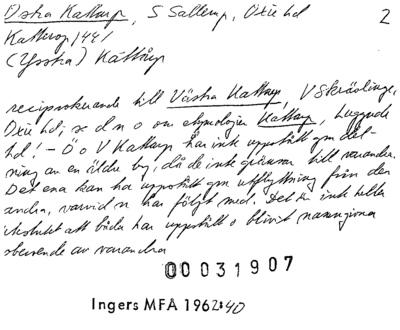 Östra Kattarp, S Sallerup, Oxie hd
2
Kattorop 1441
(Yssta) Kattåp
reciprokerande till Västra Kattarp, V Skrävlinge,
Oxie hd; s d n o om etymologin Kattarp, Luggude
hd! – Ö o V Kattarp har ink uppstått gm del-
ning av en äldre by, då de ink gränsar till varandra.
Det ena kan ha uppstått gm utflyttning från det
andra, varvid n har följt med. Det är ink heller
uteslutet att båda har uppstått o blivit namngivna
oberoende av varandra
00031907
Ingers MFA 1962:40